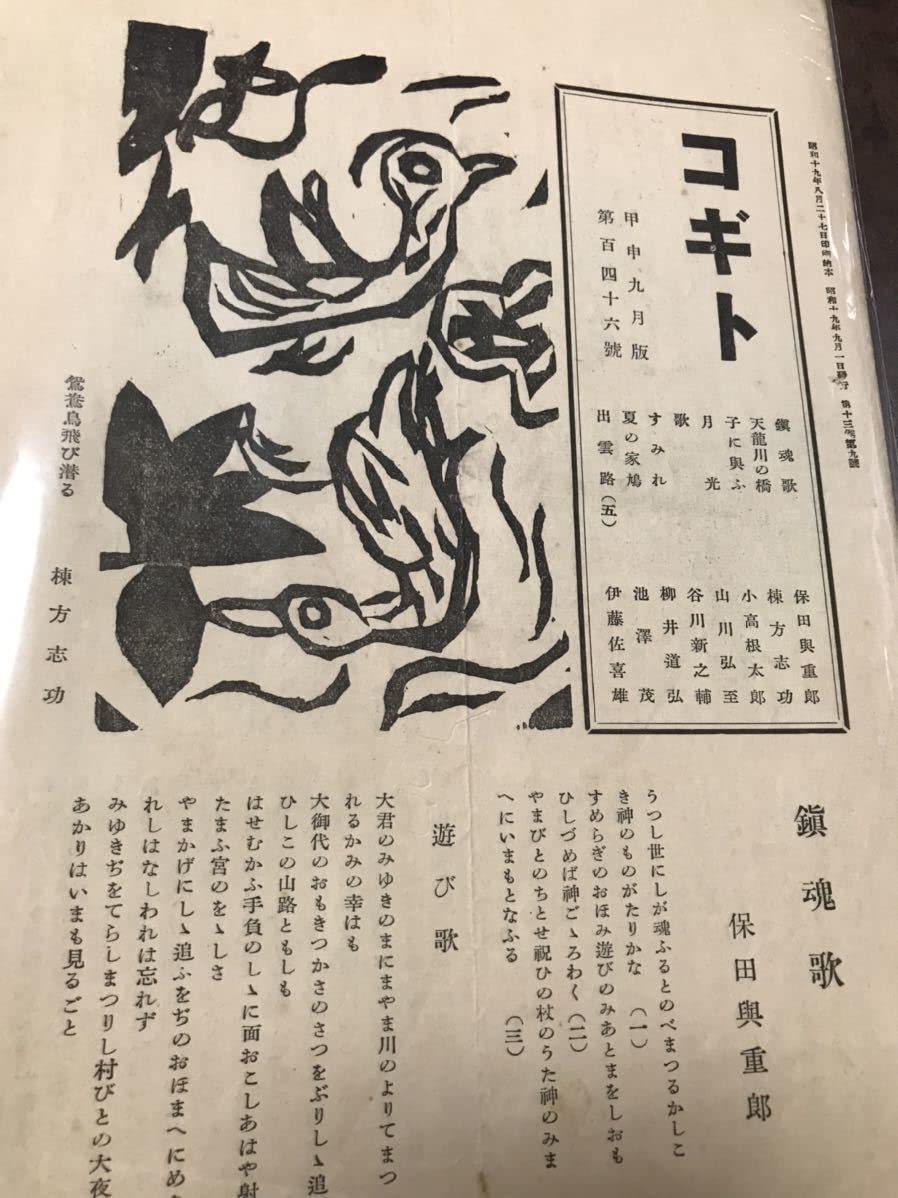 昭和十九年八月二十七日印刷納本 昭和十九年九月一日發行 第十三卷第九號
コギト
甲申九月版
第百四十六號
鎭魂歌 保田與重郎
天龍川の橋 棟方志功
子に與ふ 小高根太郎
月光 山川弘至
歌 谷川新之輔
すみれ 柳井道弘
夏の家鳩 池澤茂
出雲路(五) 伊藤佐喜雄
鴛鴦鳥飛び潜る 棟方志功
鎭魂歌
保田與重郎
うつし世にしが魂ふるとのべまつるかしこ
き神のものがたりかな (一)
すめらぎのおほみ遊びのみあとまをしおも
ひしづめば神ごゝろわく (二)
やまびとのちとせ祝ひの杖のうた神のみま
へにいまもとなふる (三)
遊び歌
大君のみゆきのまにまやま川のよりてまつ
れるかみの幸はも
大御代のおもきつかさのさつをぶりしゝ追
ひしこの山路ともしも
はせむかふ手負のしゝに面おこしあはや射
たまふ宮のをゝしさ
やまかげにしゝ追ふをぢのおほまへにめ
れしはなしわれは忘れず
みゆきぢをてらしまつりし村びとの大夜
あかりはいまも見るごと